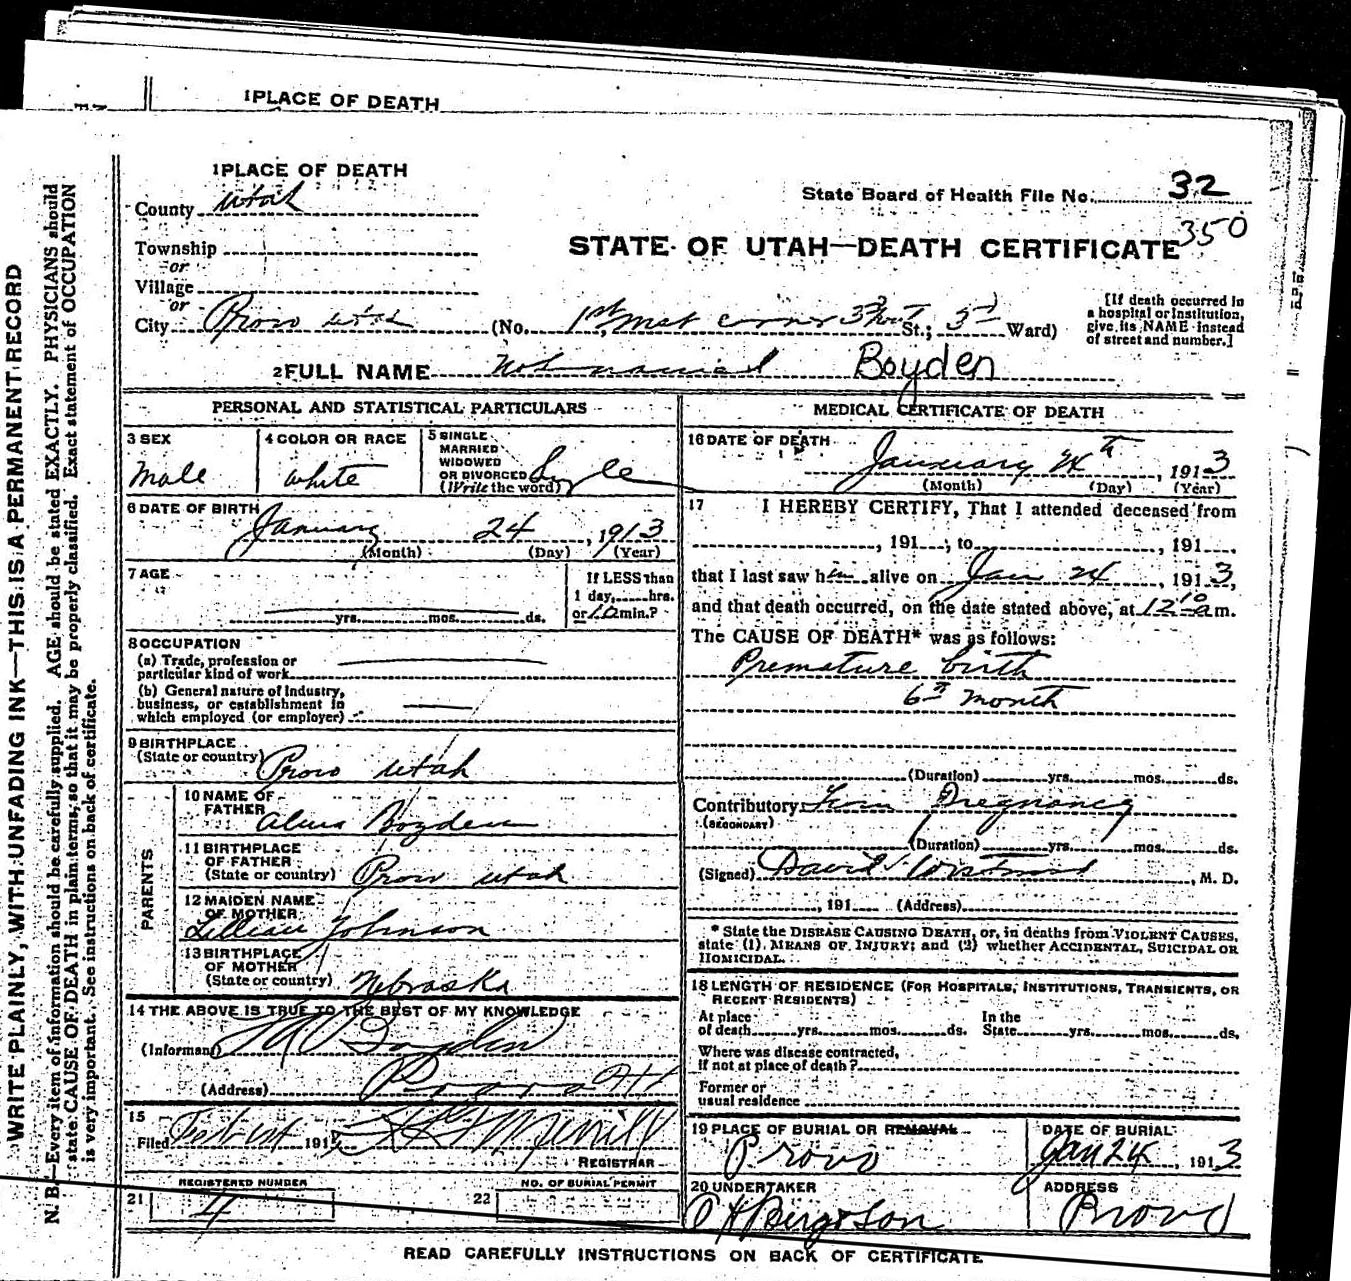 1 PLACE OF DEATH
1 PLACE OF DEATH
County Utah
State Board of Health File No. 32
350
Township
or
Village
or
City Provo Utah
STATE OF UTAH—DEATH CERTIFICATE
(No. 1st West corner 3 St.; 5 Ward)
[If death occurred in
a hospital or institution,
give its NAME instead
of street and number.]
2 FULL NAME Not named Boyden
PERSONAL AND STATISTICAL PARTICULARS
3 SEX
Male
4 COLOR OR RACE
White
5 SINGLE
MARRIED
WIDOWED
OR DIVORCED
(Write the word)
Single
6 DATE OF BIRTH
January 24, 1913
(Month) (Day) (Year)
7 AGE
yrs. mos. ds.
If LESS than
1 day, hrs.
or 10 min.?
8 OCCUPATION
(a) Trade, profession or
particular kind of work
(b) General nature of Industry,
business, or establishment in
which employed (or employer)
9 BIRTHPLACE
(State or country) Provo Utah
PARENTS
10 NAME OF
FATHER
Boyden
11 BIRTHPLACE
OF FATHER
(State or country) Provo Utah
12 MAIDEN NAME
OF MOTHER
Lillian Johnson
13 BIRTHPLACE
OF MOTHER
(State or country) Nebraska
14 THE ABOVE IS TRUE TO THE BEST OF MY KNOWLEDGE
(Informant) Boyden
(Address) Provo
15
Filed 191 Merrill
REGISTRAR
21 REGISTERED NUMBER
4
22 NO. OF BURIAL PERMIT
MEDICAL CERTIFICATE OF DEATH
16 DATE OF DEATH
January 24th, 1913
(Month) (Day) (Year)
17 I HEREBY CERTIFY, That I attended deceased from
, 191 , to , 191 .
that I last saw him alive on Jan 24, 1913,
and that death occurred, on the date stated above, at 12 10 am.
The CAUSE OF DEATH* was as follows:
Premature birth
6th month
(Duration) yrs. mos. ds.
Contributory Twin Pregnancy
(SECONDARY)
(Duration) yrs. mos. ds.
(Signed) David , M. D.
, 191 (Address)
* State the DISEASE CAUSING DEATH, or, in deaths from VIOLENT CAUSES,
state (1) MEANS OF INJURY; and (2) whether ACCIDENTAL, SUICIDAL OR
HOMICIDAL.
18 LENGTH OF RESIDENCE (FOR HOSPITALS, INSTITUTIONS, TRANSIENTS, OR
RECENT RESIDENTS)
At place
of death yrs. mos. ds.
In the
State yrs. mos. ds.
Where was disease contracted,
if not at place of death?
Former or
usual residence
19 PLACE OF BURIAL OR REMOVAL
Provo
DATE OF BURIAL
Jan 24, 1913
20 UNDERTAKER
ADDRESS
Provo
READ CAREFULLY INSTRUCTIONS ON BACK OF CERTIFICATE
WRITE PLAINLY, WITH UNFADING INK—THIS IS A PERMANENT RECORD
N. B.—Every item of information should be carefully supplied. AGE should be stated EXACTLY. PHYSICIANS should
state CAUSE OF DEATH in plain terms, so that it may be properly classified. Exact statement of OCCUPATION
is very important. See instructions on back of certificate.